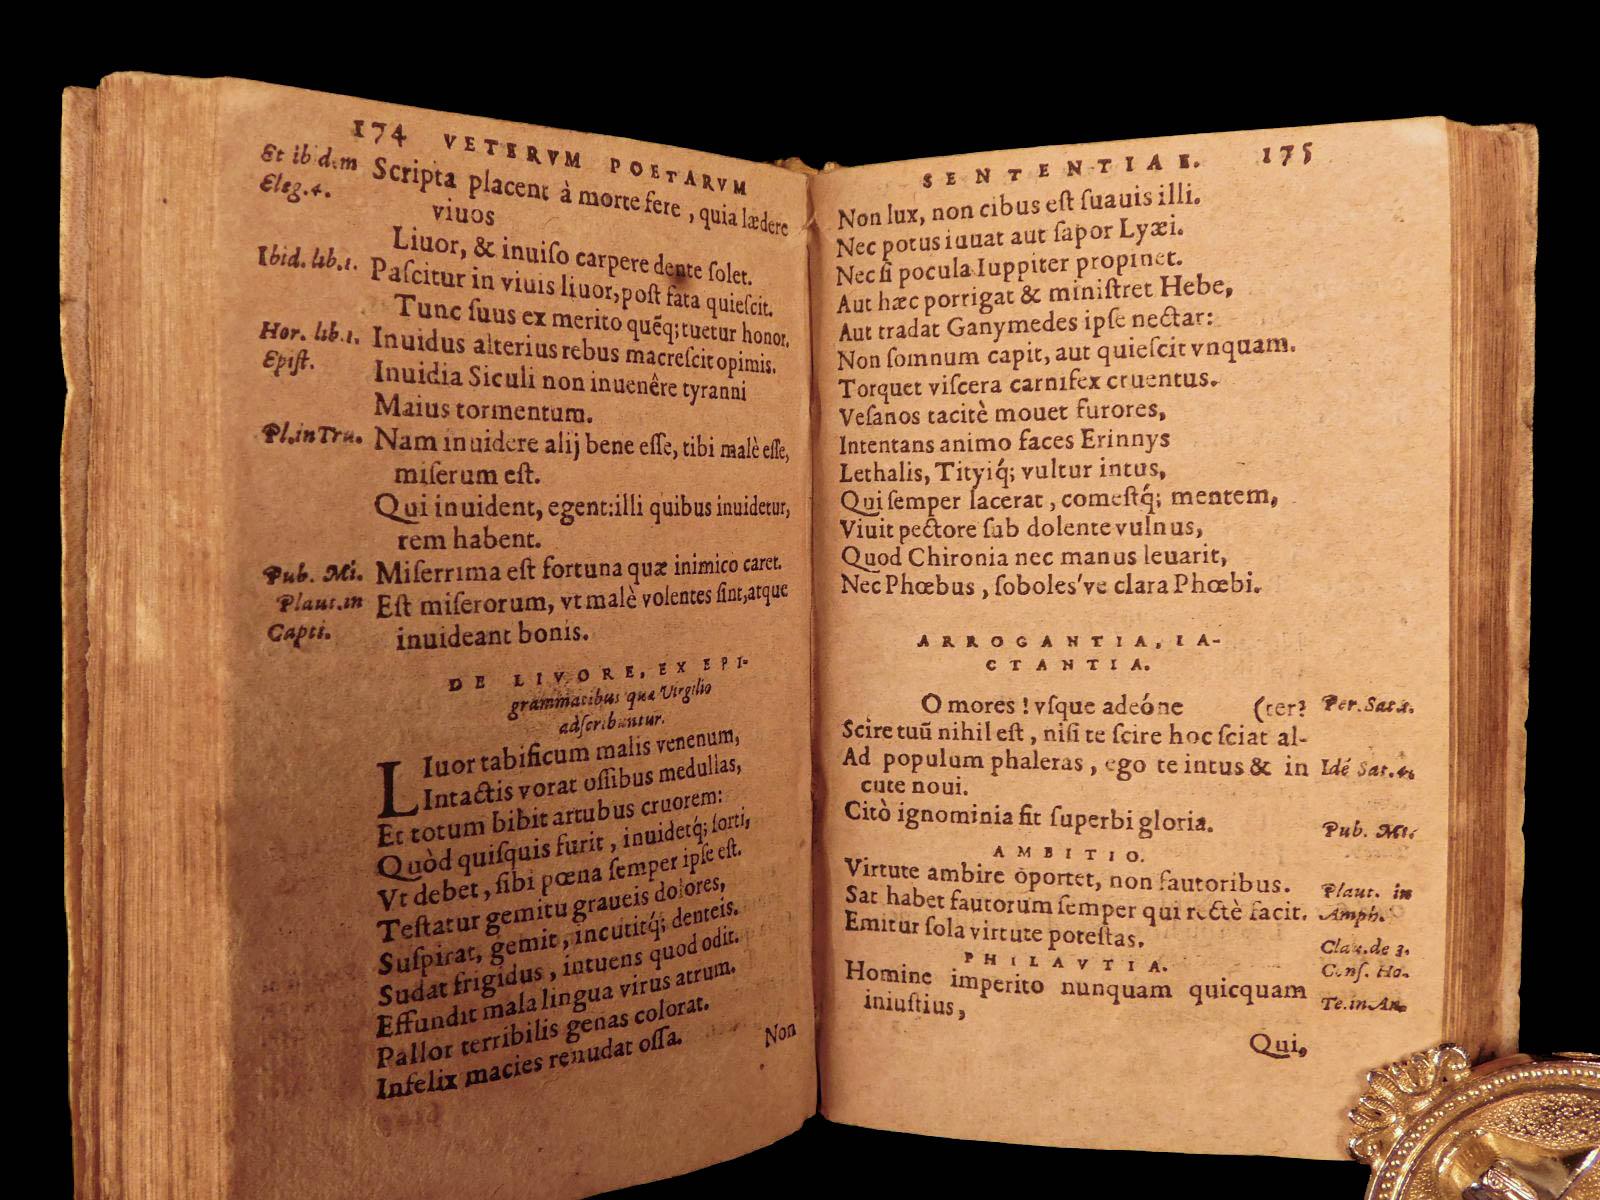 174 VETERVM POETARVM
Et ibidem Scripta placent à morte fere, quia lædere
Eleg. 4. viuos
Liuor, & iniuſo carpere dente ſolet.
Ibid. lib. 1. Paſcitur in viuis liuor, poſt fata quieſcit.
Tunc ſuus ex merito quẽq; tuetur honor.
Hor. lib. 1. Inuidus alterius rebus macreſcit opimis.
Epiſt. Inuidia Siculi non inuenêre tyranni
Maius tormentum.
Pl. in Tru. Nam inuidere alij bene eſſe, tibi malè eſſe,
miſerum eſt.
Qui inuident, egent: illi quibus inuidetur,
rem habent.
Pub. Mi. Miſerrima eſt fortuna quæ inimico caret.
Plaut. in Eſt miſerorum, vt malè volentes ſint, atque
Capti. inuideant bonis.
DE LIVORE, EX EPI-
grammatibus quæ Virgilio
adſcribuntur.
LIuor tabificum malis venenum,
Intactis vorat oſſibus medullas,
Et totum bibit artubus cruorem:
Quòd quiſquis furit, inuidetq́; ſorti,
Vt debet, ſibi pœna ſemper ipſe eſt.
Teſtatur gemitu graueis dolores,
Suſpirat, gemit, incutitq́; denteis.
Sudat frigidus, intuens quod odit.
Effundit mala lingua virus atrum.
Pallor terribilis genas colorat.
Infelix macies renudat oſſa.
Non
SENTENTIAE. 175
Non lux, non cibus eſt ſuauis illi.
Nec potus iuuat aut ſapor Lyæi.
Nec ſi pocula Iuppiter propinet.
Aut hæc porrigat & miniſtret Hebe,
Aut tradat Ganymedes ipſe nectar:
Non ſomnum capit, aut quieſcit vnquam.
Torquet viſcera carnifex cruentus.
Veſanos tacitè mouet furores,
Intentans animo faces Erinnys
Lethalis, Tityiq́; vultur intus,
Qui ſemper lacerat, comeſtq́; mentem,
Viuit pectore ſub dolente vulnus,
Quod Chironia nec manus leuarit,
Nec Phœbus, ſoboles've clara Phœbi.
ARROGANTIA, IA-
CTANTIA.
O mores! vſque adeóne (ter? Per. Sat. 1.
Scire tuũ nihil eſt, niſi te ſcire hoc ſciat al-
Ad populum phaleras, ego te intus & in Idé Sat. 4.
cute noui.
Citò ignominia fit ſuperbi gloria. Pub. Mi.
AMBITIO.
Virtute ambire oportet, non fautoribus. Plaut. in
Sat habet fautorum ſemper qui rectè facit. Amph.
Emitur ſola virtute poteſtas. Clau. de 3.
PHILAVTIA. Conſ. Ho.
Homine imperito nunquam quicquam Te. in An.
iniuſtius,
Qui,